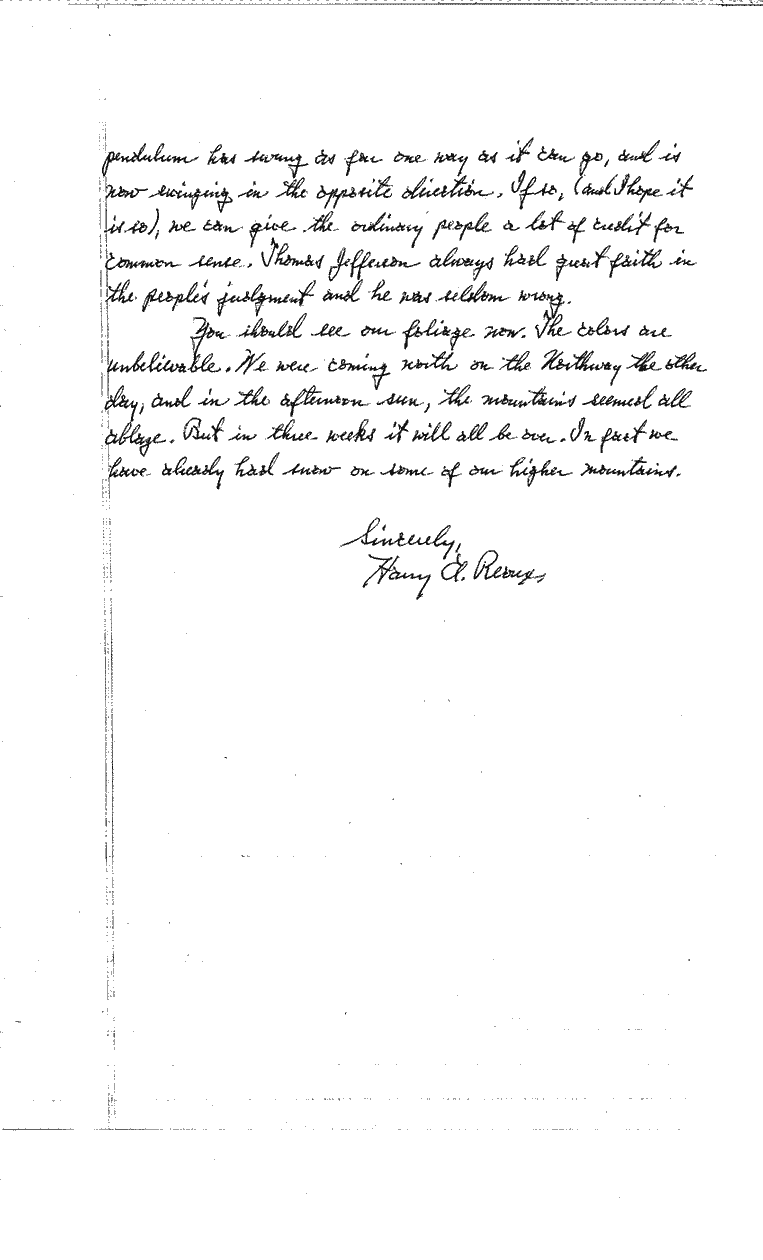 pendulum has swung as far one way as it can go, and is
now swinging in the opposite direction. If so, (and I hope it
is so), we can give the ordinary people a lot of credit for
common sense. Thomas Jefferson always had great faith in
the people's judgment and he was seldom wrong.
You should see our foliage now. The colors are
unbelievable. We were coming north on the Northway the other
day, and in the afternoon sun, the mountains seemed all
ablaze. But in three weeks it will all be over. In fact we
have already had snow on some of our higher mountains.
Sincerely,
Harry A. Reoux